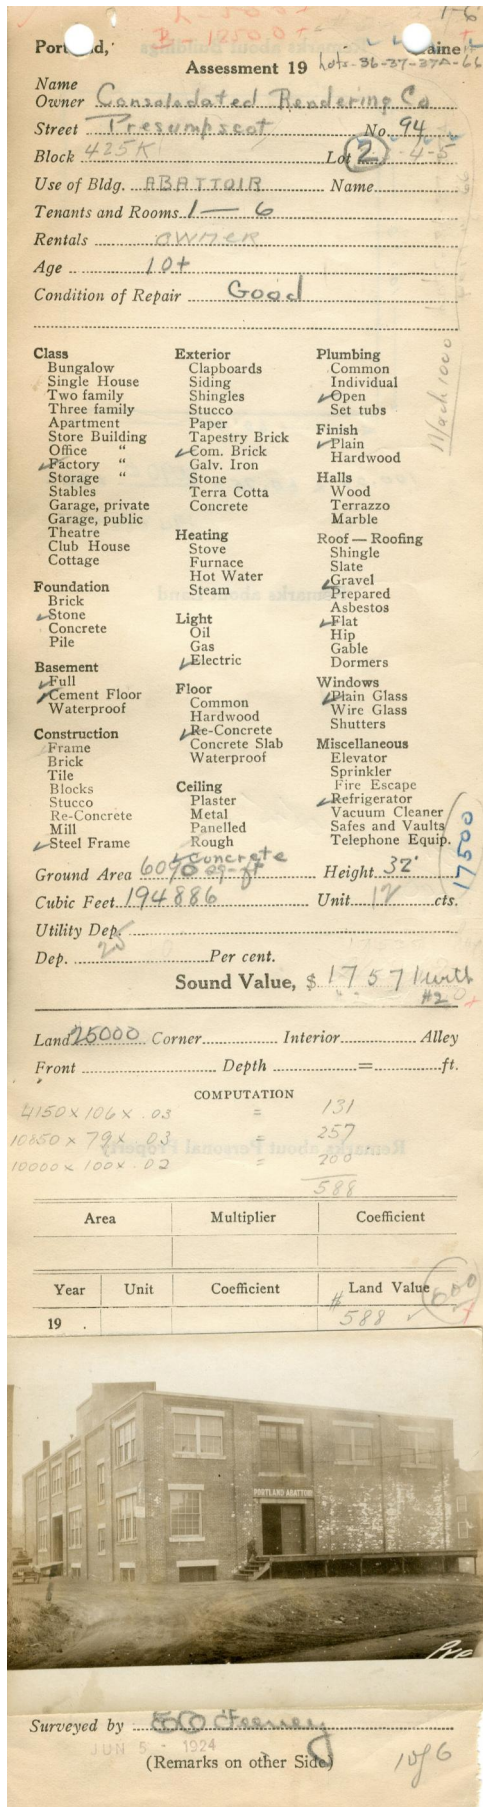 B - 1250.0+
1-6
Portland, Maine
Assessment 19 Lots-36-37-37A-66
Name
Owner Consolodated Rendering Co
Street Presumpscot No. 94
Block 425K Lot 2 - 4-5
Use of Bldg. ABATTOIR Name
Tenants and Rooms 1 — 6
Rentals OWNER
Age 10+
Condition of Repair Good
Mach 1000
Class
Bungalow
Single House
Two family
Three family
Apartment
Store Building
Office "
✓Factory "
Storage "
Stables
Garage, private
Garage, public
Theatre
Club House
Cottage
Foundation
Brick
✓Stone
Concrete
Pile
Basement
✓Full
✓Cement Floor
Waterproof
Construction
Frame
Brick
Tile
Blocks
Stucco
Re-Concrete
Mill
✓Steel Frame
Exterior
Clapboards
Siding
Shingles
Stucco
Paper
Tapestry Brick
✓Com. Brick
Galv. Iron
Stone
Terra Cotta
Concrete
Heating
Stove
Furnace
Hot Water
Steam
Light
Oil
Gas
✓Electric
Floor
Common
Hardwood
✓Re-Concrete
Concrete Slab
Waterproof
Ceiling
Plaster
Metal
Panelled
Rough
✓Concrete
Plumbing
Common
Individual
✓Open
Set tubs
Finish
✓Plain
Hardwood
Halls
Wood
Terrazzo
Marble
Roof — Roofing
Shingle
Slate
✓Gravel
Prepared
Asbestos
✓Flat
Hip
Gable
Dormers
Windows
✓Plain Glass
Wire Glass
Shutters
Miscellaneous
Elevator
Sprinkler
Fire Escape
✓Refrigerator
Vacuum Cleaner
Safes and Vaults
Telephone Equip.
17500
Ground Area 6090 sq-ft Height 32'
Cubic Feet 194886 Unit 12 cts.
Utility Dep.
Dep. 25 Per cent.
Sound Value, $ 17571 with
#2
Land 25000 Corner Interior Alley
Front Depth = ft.
COMPUTATION
4150 x 106 x .03 = 131
10850 x 79 x .03 = 257
10000 x 100 x .02 = 200
588
Area Multiplier Coefficient
Year Unit Coefficient Land Value 600
19 . $588
PORTLAND ABATTOIR
Surveyed by
JUN 5 - 1924
(Remarks on other Side)
1 of 6